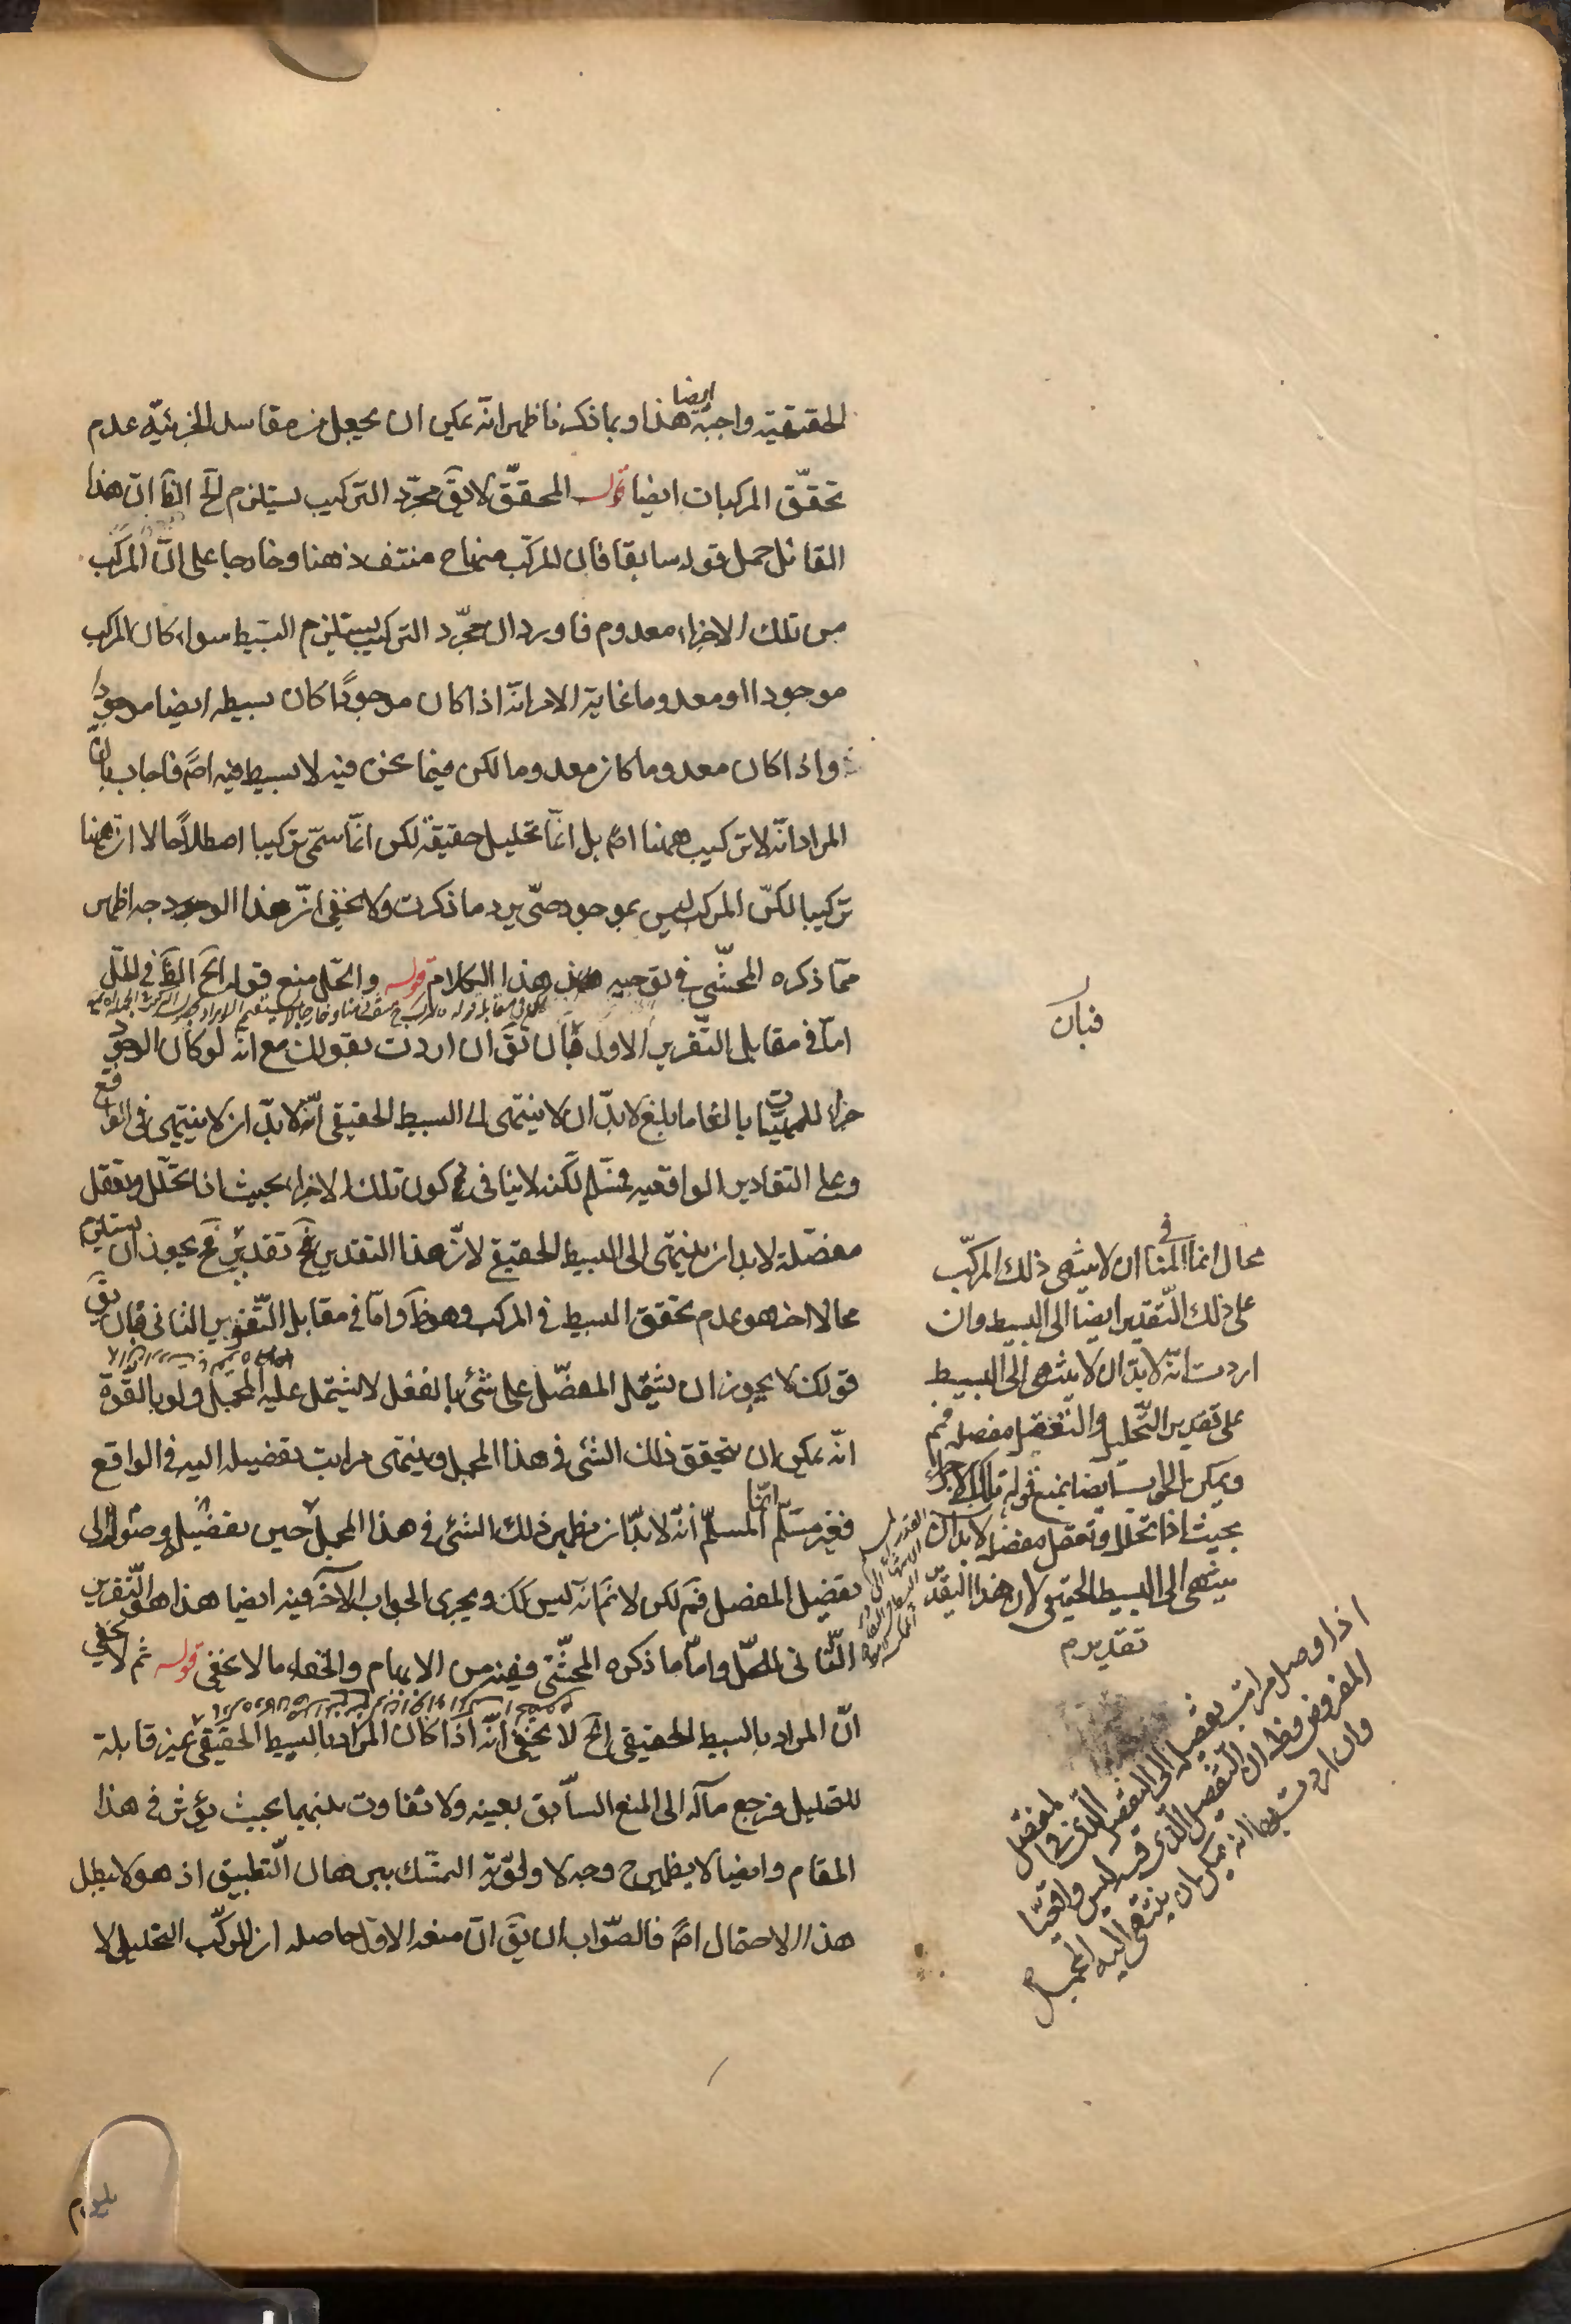 الحقيقية واجبة ايضا هذا وبما ذكرنا ظهر انه يمكن ان يجعل من مفاسد الجزئية عدم
تحقّق المركبات ايضا قوله المحقّق لا يقَ مجرّد التركيب يستلزم الخ الظَ ان هذا
القائل حمل قوله سابقا فان المركّب منها ح منتف ذهنا وخارجا على انّ المركّب
من تلك الاجزاء معدوم فاورد ان مجرّد التركيب يستلزم البسيط سواء كان المركب
موجودا او معدوما غاية الامر انّه اذا كان موجودًا كان بسيطه ايضا موجودا
واذا كان معدوما كان معدوما لكن فيما نحن فيه لا بسيط فيه اصً فاجاب بانّ
المراد انّه لا تركيب ههنا اصً بل انّما تحليل حقيقة لكن انّما سمّى تركيبا اصطلاحًا لا ان ههنا
تركيبا لكنّ المركب ليس بموجود حتّى يرد ما ذكرت ولا يخفى انّ هذا الوجه اظهر
ممّا ذكره المحشّى فى توجيه هذا الكلام قوله والحلّ منع قوله الخ الظَ فى الحلّ
امّا فى مقابل التّقرير الاول فبان يقَ ان اردت بقولك مع انّه لو كان الوجود
جزء للمهيّات بالغا ما بلغ لا بدّ ان لا ينتهى الى البسيط الحقيقى انّه لا بدّ ان لا ينتهى فى الواقع
وعلى التقادير الواقعيه فمسّلم لكنه لا ينافى كون تلك الاجزاء بحيث اذا تحلّل وتعقل
مفصّلة لا بد ان ينتهى الى البسيط الحقيقى لانّ هذا التقدير مح تقدير مح يجوز ان يستلزم
محالا اخر هو عدم تحقق البسيط فى المركب وهو ظَ وامّا فى مقابل التّقرير الثانى فبان يقَ
قولك لا يجوز ان يشتمل المفصّل على شئ بالفعل لا يشتمل عليه المجمل ولو بالقوّة
انّه يمكن ان يتحقق ذلك الشئ فى هذا المجمل وينتهى مراتب تفصيله اليه فى الواقع
فغير مسّلم انّما المسلّم انّه لا بدّ ان يظهر ذلك الشئ فى هذا المجمل حين تفصيله وصوله الى
تفصيل المفصل فمَ لكن لا نمَ انّه ليس كك ويجرى الجواب الآخر فيه ايضا هذا هو التّقرير
الثّانى للحّل وامّا ما ذكره المحشّى ففيه من الابهام والخفاء ما لا يخفى قوله ثم لا يخفى
انّ المراد بالبسيط الحقيقى الخ لا يخفى انّه اذا كان المراد بالبسيط الحقيقى غير قابلة
للتحليل فرجع مآله الى المنع السّابق بعينه ولا تفاوت بينهما بحيث يؤثر فى هذا
المقام وايضا لا يظهر ح وجه لا ولويّة التمسّك ببرهان التّطبيق اذ هو لا يبطل
هذا الاحتمال اصً فالصّواب ان يقَ انّ منعه الاوّل حاصله ان المركّب التحليلى لا
فبان
محال انما المنافى ان لا ينتهى ذلك المركّب
على ذلك التّقدير ايضا الى البسيط وان
اردت انّه لا بدّ ان لا ينتهى الى البسيط
على تقدير التّحليل والتّعقل مفصله فمَ
ويمكن الجواب ايضا بمنع قوله تلك الاجزاء
بحيث اذا تحلّل وتعقل مفصل لا بد ان
ينتهى الى البسيط الحقيقى لان هذا التقدير
تقدير م
اذا وصل مراتب تفصيله الى التفصيل الّذى فى المفصّل
المفروض فظ ان التّفصيل الّذى فيه ليس واقعيّا
وان اردت به انه يمكن ان ينتهى اليه المجمل